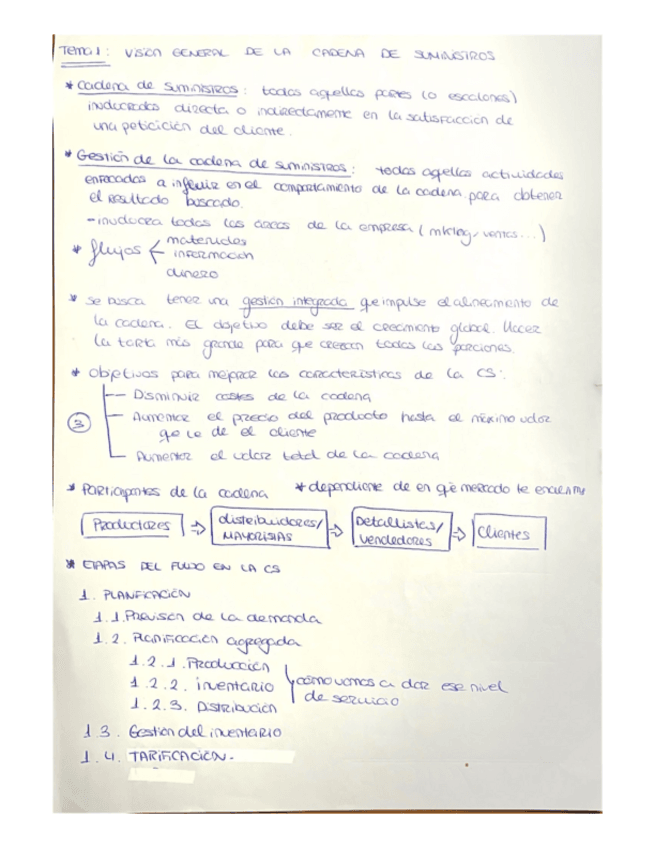 Tema 1: VISION GENERAL DE LA CADENA DE SUMINISTROS
* Cadena de suministros: todas aquellas partes (o escalones)
involucradas directa o indirectamente en la satisfacción de
una peticición del cliente.
* Gestión de la cadena de suministros: todas aquellas actividades
enfocadas a influir en el comportamiento de la cadena para obtener
el resultado buscado.
- involucra todas las áreas de la empresa (mkting, ventas...)
* flujos < materiales
información
dinero
* Se busca tener una gestión integrada que impulse el alineamiento de
la cadena. El objetivo debe ser el crecimiento global. Hacer
la tarta más grande para que crezcan todas las porciones.
* Objetivos para mejorar las características de la CS:
— Disminuir costes de la cadena
③ — Aumentar el precio del producto hasta el máximo valor
que le de el cliente
— Aumentar el valor total de la cadena
* Participantes de la cadena * dependiente de en qué mercado te encuentre
Productores ⇒ distribuidores/ MAYORISTAS ⇒ Detallistas/ vendedores ⇒ Clientes
* ETAPAS DEL FLUJO EN LA CS
1. PLANIFICACIÓN
1.1. Previsión de la demanda
1.2. Planificación agregada
1.2.1. Producción
1.2.2. inventario } cómo vamos a dar ese nivel
de servicio
1.2.3. Distribución
1.3. Gestión del inventario
1.4. TARIFICACIÓN.